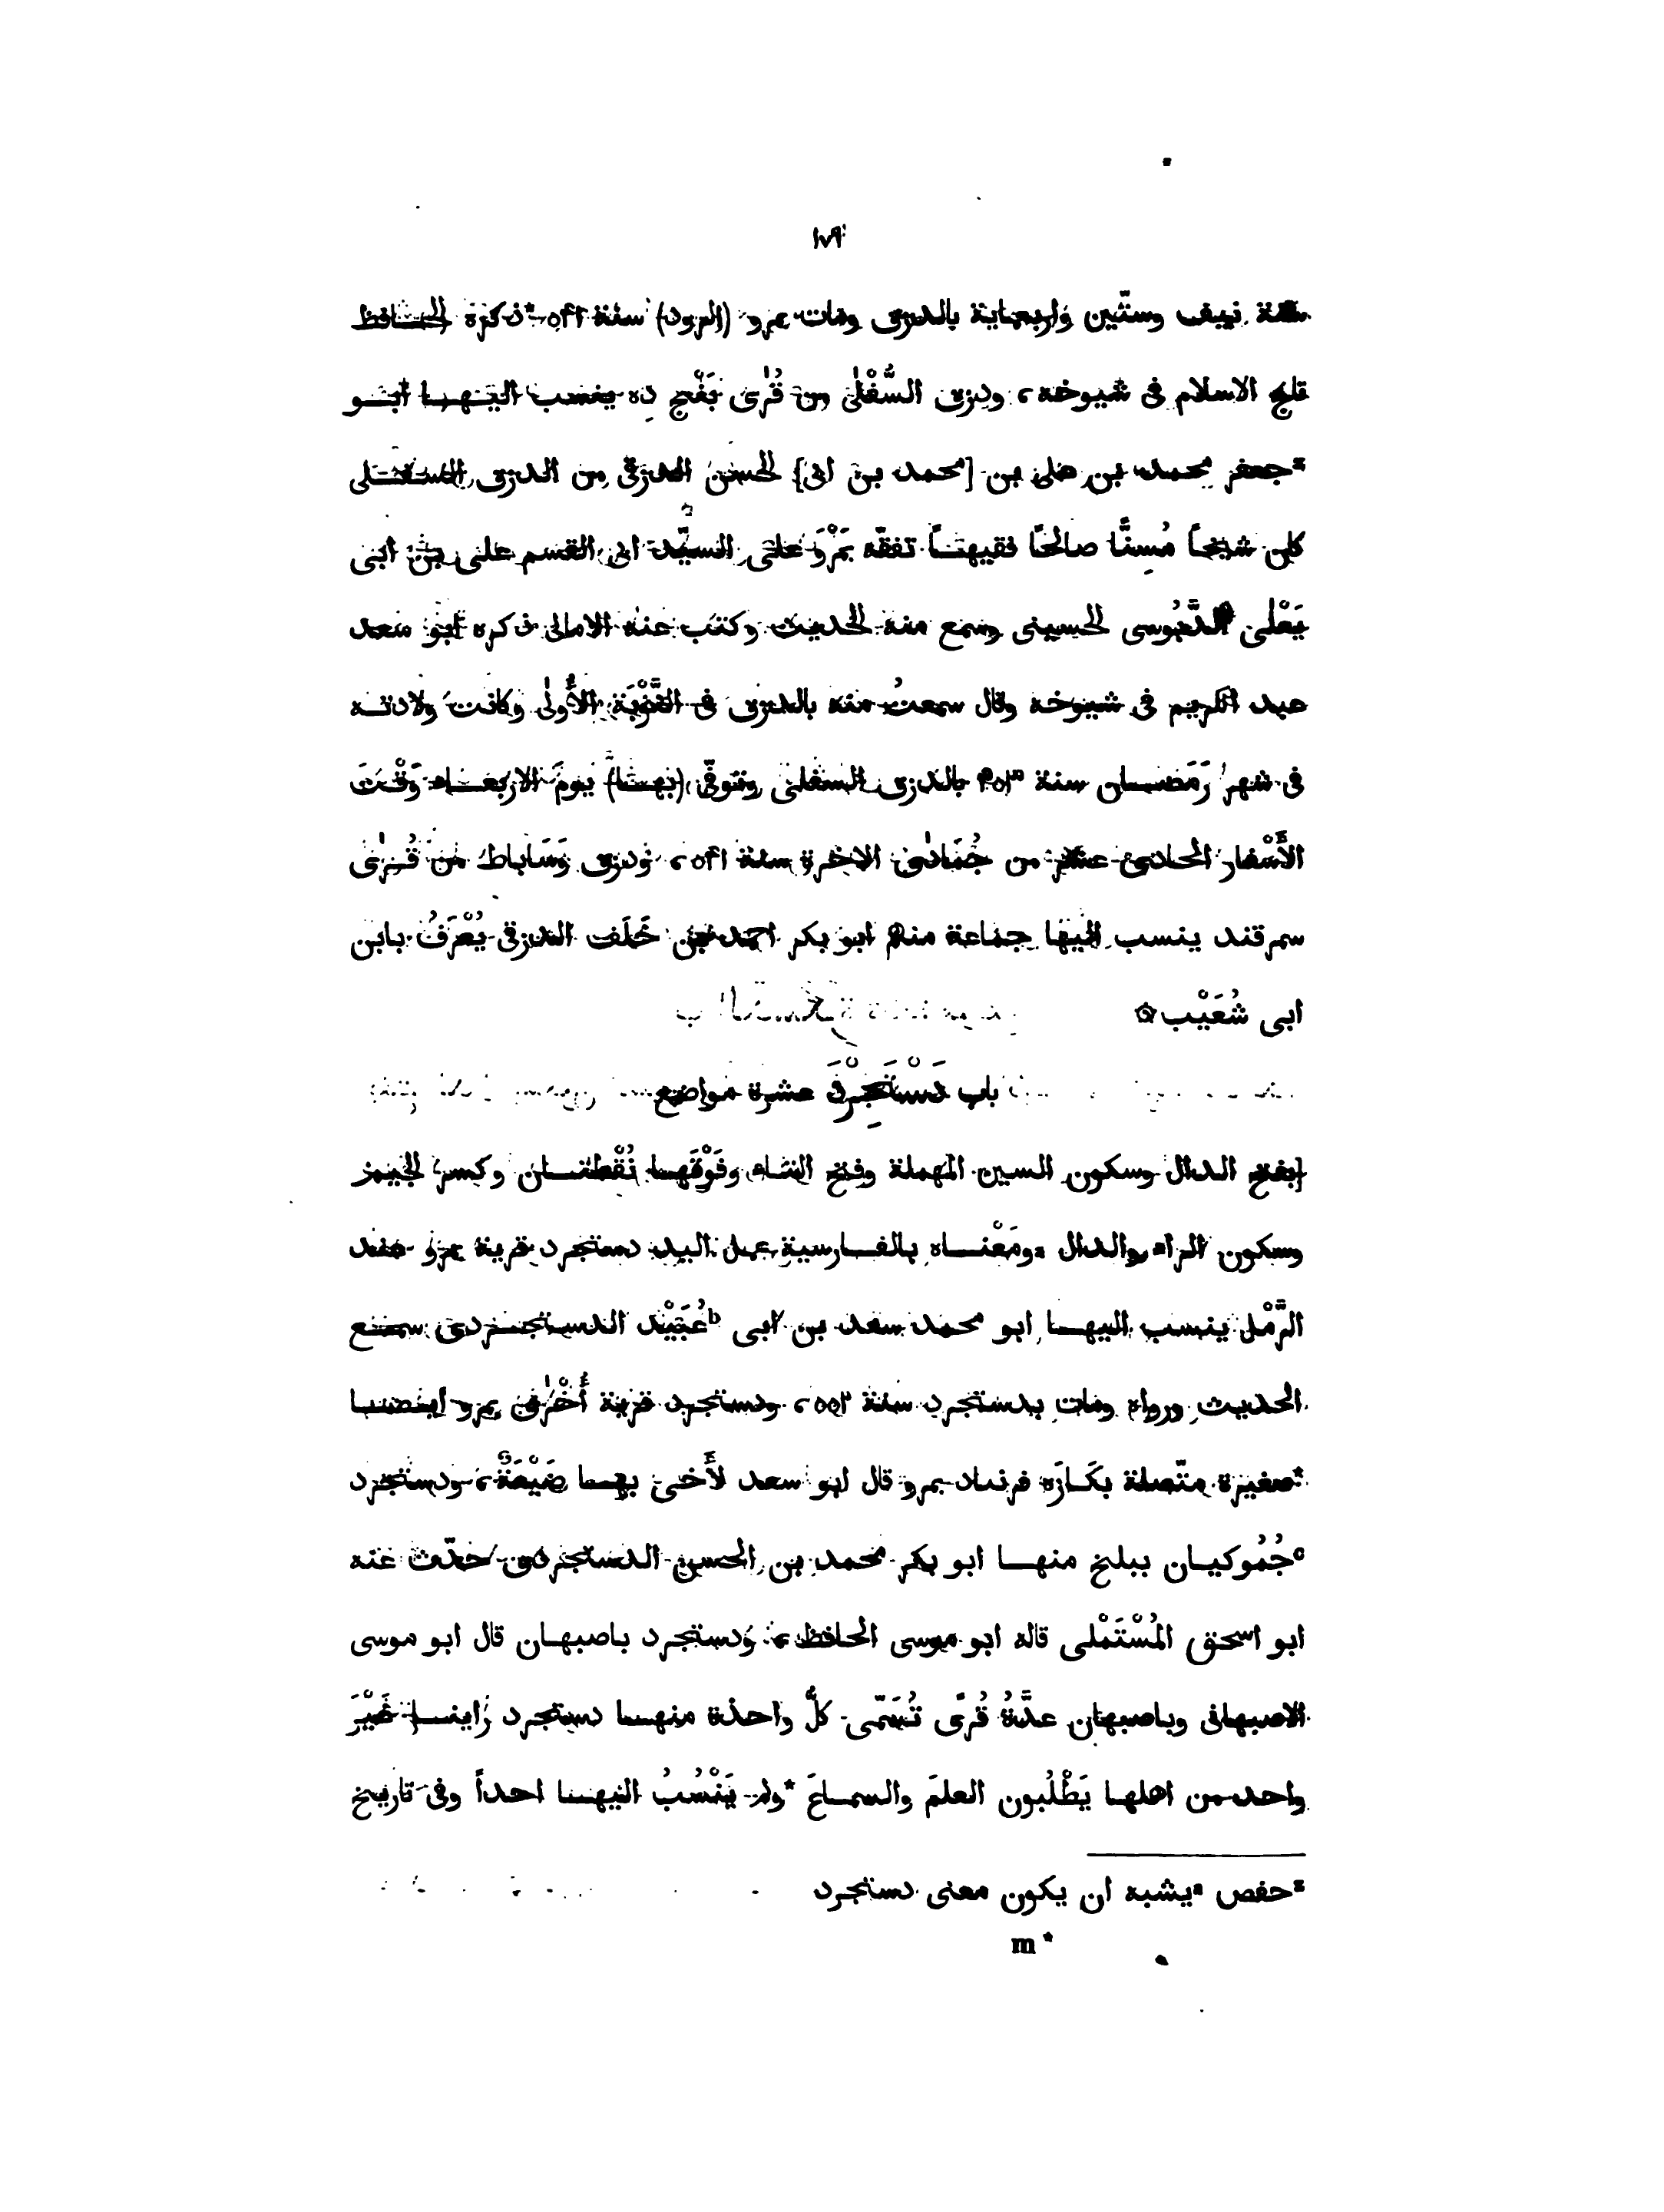 ١٧٩
سنة نيف وستّين واربعماية بالدزق ومات بمرو (الرود) سنة ٥٤١ *ذكره الحافظ
تاج الاسلام فى شيوخه، ودزق السُّفْلٰى من قُرٰى بَنْج دِه ينسب اليهما ابو
ᵃجعفر محمد بن على بن [محمد بن ابى] الحسن الدزقى من الدزق السفلى
كان شيخاً مُسِنًّا صالحًا فقيهاً تفقّه بمَرْوَ على السيّد ابى القسم على بن ابى
يَعْلٰى الدَّبُوسى الحسينى وسمع منه الحديث وكتب عنه الامالى ذكره ابو سعد
عبد الكريم فى شيوخه وقال سمعتُ منه بالدزق فى النَّوْبَة الأُولٰى وكانت ولادته
فى شهر رَمَضان سنة ٤٥٣ بالدزق السفلى وتوفّى (بها) يومَ الاربعاء وَقْتَ
الأَسْفار الحادى عشر من جُمَادٰى الاخرة سنة ٥٤١، ودزق وَسَاباط من قُرٰى
سمرقند ينسب اليها جماعة منهم ابو بكر احمد بن خَلَف الدزقى يُعْرَفُ بابن
ابى شُعَيْب ۞
باب دَسْتَجِرْدَ عشرة مواضع
[بفتح الدال وسكون السين المهملة وفتح التاء وفَوْقَها نُقْطتان وكسر الجيم
وسكون الراء والدال ᵃومَعْناه بالفارسية عمل اليد دستجرد قرية بمرو عند
الرَّمْل ينسب اليها ابو محمد سعد بن ابى ᵇعُبَيْد الدستجردى سمع
الحديث ورواه ومات بدستجرد سنة ٥٥٢، ودستجرد قرية أُخْرٰى بمرو ايضا
*صغيرة متّصلة بكَازَه فرنداد بمرو قال ابو سعد لأَخى بها ضَيْعَةٌ، ودستجرد
ᶜجُمُوكيان ببلخ منها ابو بكر محمد بن الحسن الدستجردى حدّث عنه
ابو اسحق المُسْتَمْلى قاله ابو موسى الحافظ، ودستجرد باصبهان قال ابو موسى
الاصبهانى وباصبهان عدَّةُ قُرًى تُسَمّى كلُّ واحدة منها دستجرد راينا غَيْرَ
واحد من اهلها يَطْلُبون العلمَ والسماعَ *ولم يَنْسُبُ اليها احداً وفى تاريخ
ᵃحفص ᵃيشبه ان يكون معنى دستجرد
m *